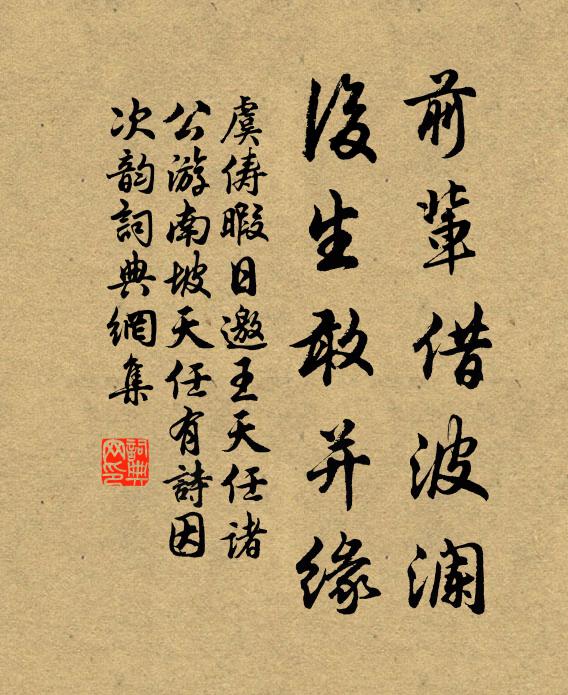 前輩借波澜
後生敢并缘
虞俦暇日邀王天任诸
公游南坡天任有詩因
次韵詞典網集
詞典网印